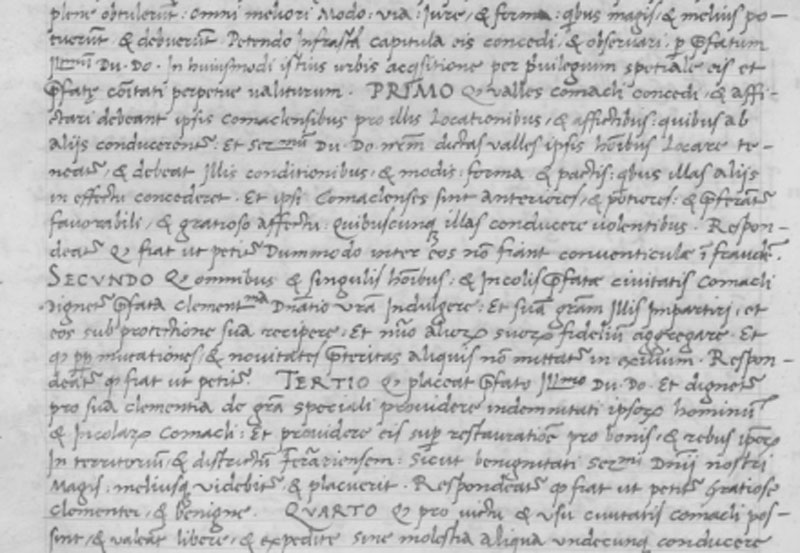 plene obtulerunt: omni meliori Modo: via: Jure, & forma: qbus magis, & melius po-
tuerunt & debuerunt. Petendo infrasta capitula eis concedi, & observari, p pfatum
Illmũ Du. Do. In huiusmodi istius urbis acqsitione per privilegium spetiale eis et
pfatę coitati perpetue valiturum. PRIMO q valles comacli concedi, & affi-
ctari debeant ipsis comaclensibus pro illis Locationibus, & affictibus: quibus ab
alijs conducerentr: Et Sermũ Du. Do. nrm dictas valles ipsis hoibus Locare te-
neatr, & debeat Illis conditionibus, & modis: forma & pactis: qbus illas alijs
in effectu concederet. Et ipsi Comaclenses sint anteriores, & potiores: & pferatr
favorabili, & gratioso affectu: quibuscunq illas conducere volentibus. Respon-
deatr q fiat ut petitr Dummodo inter eos nõ fiant conventiculæ ĩ fraudẽ.
SECUNDO q omnibus & singulis hoibus, & Incolis pfatæ civitatis Comacli
Dignetr pfata Clementma Dnatio vra Indulgere: Et suã gram Illis Impartiri, et
eos sub protectione sua recipere, Et nuo aliorꝝ suorꝝ fideliũ aggregare. Et
q pp mutationes, & novitates pteritas aliquis nõ mittatr in exilium. Respon-
deatr q fiat ut petitr. TERTIO q placeat pfato Illmo Du. Do. Et dignetr
pro sua clementia de gra speciali providere indemnitati ipsorꝝ hominũ
& Incolarꝝ Comacli: Et providere eis supr restauratiõe pro bonis, & rebus ipsorꝝ
In territoriũ, & districtũ Ferrariensem: Sicut benignitati Sermi Dnii nostri
Magis: meliusq videbitr & placuerit. Respondeatr q fiat ut petitr Gratiose
clementer, & benigne. QUARTO q pro victu & usu civitatis comacli pos-
sint, & valeat libere, & expedite sine molestia aliqua undecunq conducere